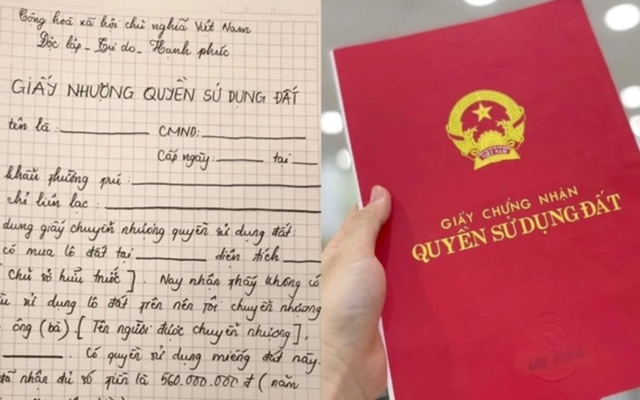 Cộng hoà xã hội chủ nghĩa Việt Nam
Độc lập - Tự do - Hạnh phúc
GIẤY NHƯỢNG QUYỀN SỬ DỤNG ĐẤT
tên là: CMND:
Cấp ngày: tại
khẩu thường trú:
chỉ liên lạc:
dung giấy chuyển nhượng quyền sử dụng đất:
có mua lô đất tại diện tích
Chủ sở hữu trước]. Nay nhận thấy không có
sử dụng lô đất trên nên tôi chuyển nhượng
ông (bà) [Tên người được chuyển nhượng],
. Có quyền sử dụng miếng đất này.
đã nhận đủ số tiền là 560.000.000 đ (năm
VIỆT NAM
GIẤY CHỨNG NHẬN
QUYỀN SỬ DỤNG ĐẤT